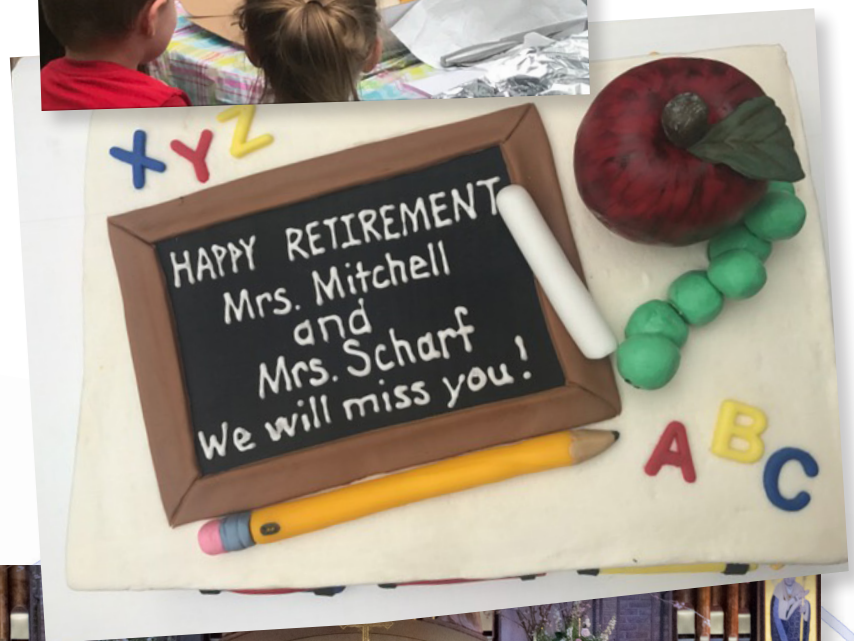 X Y Z
HAPPY RETIREMENT
Mrs. Mitchell
and
Mrs. Scharf
We will miss you!
A B C